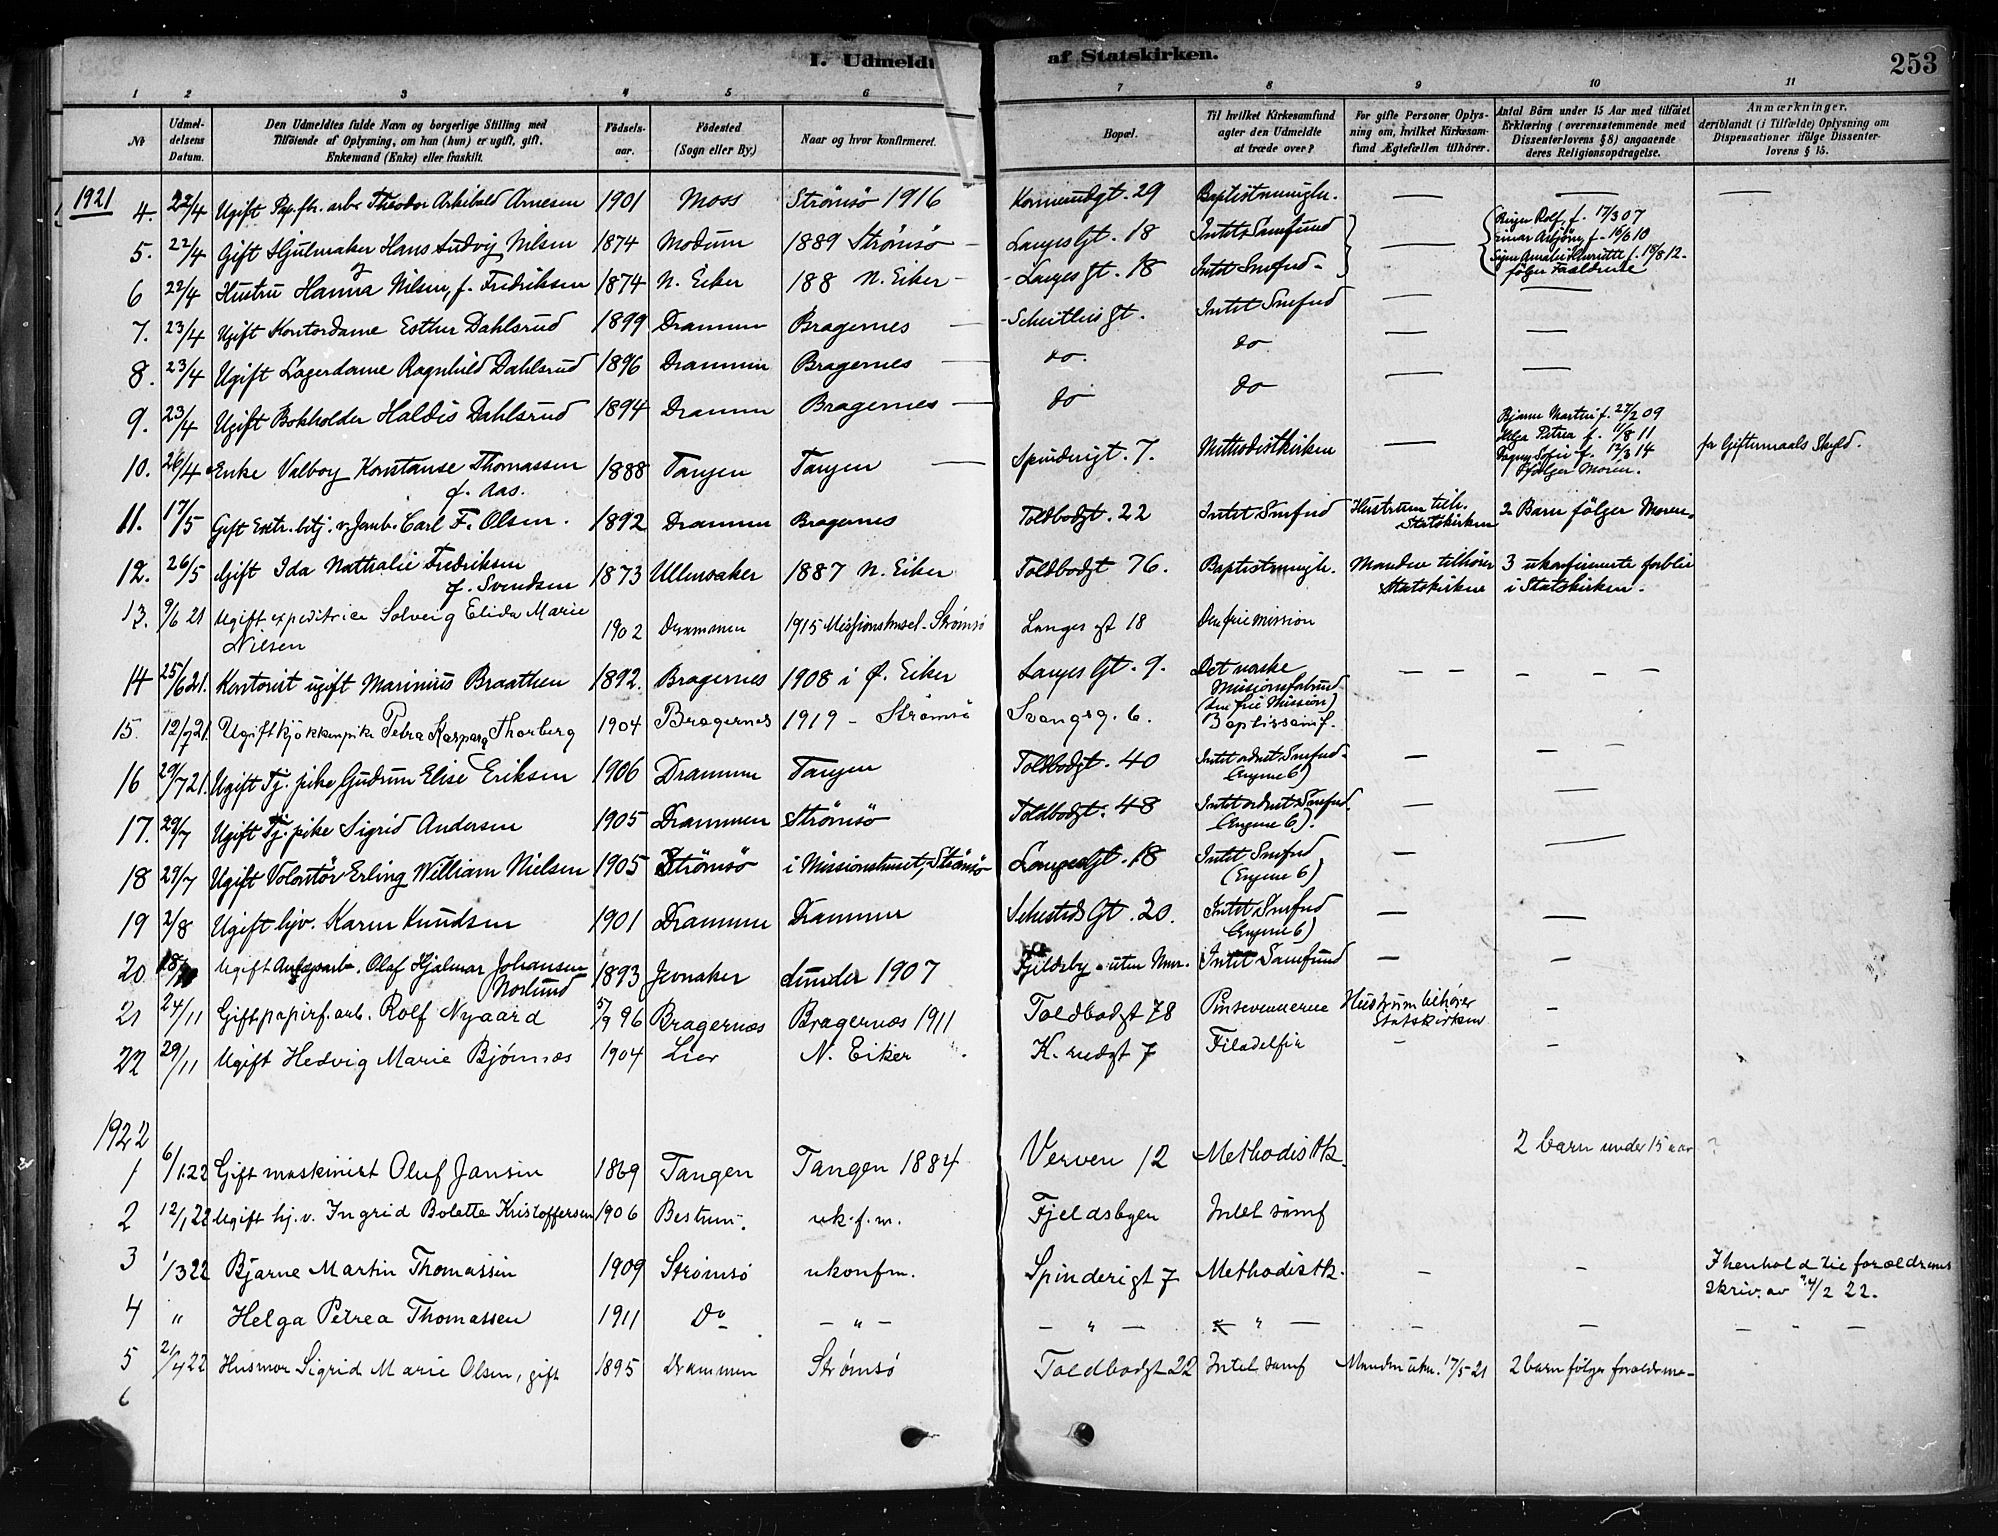 I. Udmeldt af Statskirken. 253
1 2 3 4 5 6 7 8 9 10 11
No
Udmeldelsens Datum.
Den Udmeldtes fulde Navn og borgerlige Stilling med Tilföiende af Oplysning, om han (hun) er ugift, gift, Enkemand (Enke) eller fraskilt.
Födselsaar.
Födested (Sogn eller By.)
Naar og hvor konfirmeret.
Bopæl.
Til hvilket Kirkesamfund agter den Udmeldte at træde over?
For gifte Personer Oplysning om, hvilket Kirkesamfund Ægtefællen tilhörer.
Antal Börn under 15 Aar med tilföiet Erklæring (overensstemmende med Dissenterlovens § 8) angaaende deres Religionsopdragelse.
Anmærkninger, deriblandt (i Tilfælde) Oplysning om Dispensationer ifölge Dissenterlovens § 15.
1921
4. 22/4 Ugift Pap.fbr. arb. Theodor Arkibald Arnesen 1901 Moss Strömsö 1916 Konnerudgt. 29 — — —
5. 22/4 Gift Hjulmaker Hans Ludvig Nilsen 1874 Modum 1889 Strömsö — Langes Gt. 18 Intet Samfund — Rolf, f. 17/3 07
6 22/4 Hustru Hanna Nilsen, f. Fredriksen 1874 N. Eiker 188 N. Eiker — Langes gt. 18 Intet Smfud. f. 18/8 12. følger Forældrene
7. 23/4 Ugift Kontordame Esther Dahlsrud 1899 Drammen Bragernes — Scheitlies gt. Intet Smfud — —
8. 23/4 Ugift Lagerdame Ragnhild Dahlsrud 1896 Drammen Bragernes — do. do — —
9. 23/4 Ugift Bokholder Haldis Dahlsrud 1894 Drammen Bragernes — do do — —
10. 26/4 Enke Valborg Konstanse Thomassen f. Aas. 1888 Tangen Tangen — Spinderigt. 7. Methodistkirken — Bjarne Martin f. 27/2 09 Helga Petrea f. 11/8 11 Dagny Sofie f. 12/3 14 følger Moren. for Giftermaals Skyld.
11. 17/5 Gift Extr. betj. v. Jernb. Carl F. Olsen. 1892 Drammen Bragernes Toldbodgt. 22 Intet Smfud Hustrum tilh. Statskirken 2 Barn følger Moren.
12. 26/5 Gift Ida Nathalie Fredriksen f. Svendsen 1873 Ullensaker 1887 N. Eiker Toldbodgt 76. Manden tilhører Statskirken 3 ukonfirmerte forblir i Statskirken.
13. 9/6 21 Ugift expeditrice Solveig Elida Marie Nilsen 1902 Drammen 1915 Missionshuset. Strømsø Langes gt 18 Den frie mission
14 25/6 21. Kontorist ugift Marinius Braathen 1892. Bragernes 1908 i Ø. Eiker Langes Gt. 9. Det norske Missionsforbund (den frie Mission) — — — — —
15. 12/7 21. Ugift kjøkkenpike Petra Kaspara Thorberg 1904 Bragernes 1919 – Strømsø Svangsg. 6. Baptissamf.
16 29/7 21. Ugift Tj. pike Gudrun Elise Eriksen 1906 Drammen Tangen Toldbodgt. 40 Intet ordnet Smfud. — — —
17. 29/7 Ugift Tj. pike Sigrid Andersen 1905 Drammen Strömsö Toldbodgt. 48 Intet ordnet Smfud. — —
18 29/7 Ugift Volontör Erling William Nielsen 1905 Strömsö i Missionshuset, Strömsö Langes Gt. 18 Intet Smfud — —
19 2/8 Ugift hjv. Karen Knudsen 1901 Drammen Drammen Schesteds Gt. 20. Intet Smfud — —
20 Ugift Olaf Hjalmar Johansen Norlund 1893 Jevnaker Lunder 1907 Fjeldsby Intet Samfund — —
21 24/11 Gift papirf. arb. Rolf Nygaard 5/9 96 Bragernæs Bragernæs 1911 Toldbodgt 78 Pinsevennerne Hustrum tilhører Statskirken –
22 29/11 Ugift Hedvig Marie Bjørnæs 1904 Lier N. Eiker K. rudgt 7 Filadelfia – –
1922
1 6/1 22 Gift maskinist Oluf Jansin 1869 Tangen Tangen 1884 Verven 12 Methodistk. 2 barn under 15 aar ?
2 12/1 22 Ugift hj. v. Ingrid Bolette Kristoffersen 1906 Bestum. uk.f.m. Fjeldsbyen Intet samf
3 1/3 22 Bjarne Martin Thomassen 1909 Strømsø ukonfm. Spinderigt 7 Methodistk. – – I henhold til forældrenes skriv. av /2 22.
4 " Helga Petrea Thomassen 1911 Do – " – – " – " – – – – " –
5 21/4 22 Husmor Sigrid Marie Olsen, gift 1895 Drammen Strømsø Toldbodgt 22 Intet samf Manden utm. 17/5-21 2 barn følger forældrene –
6